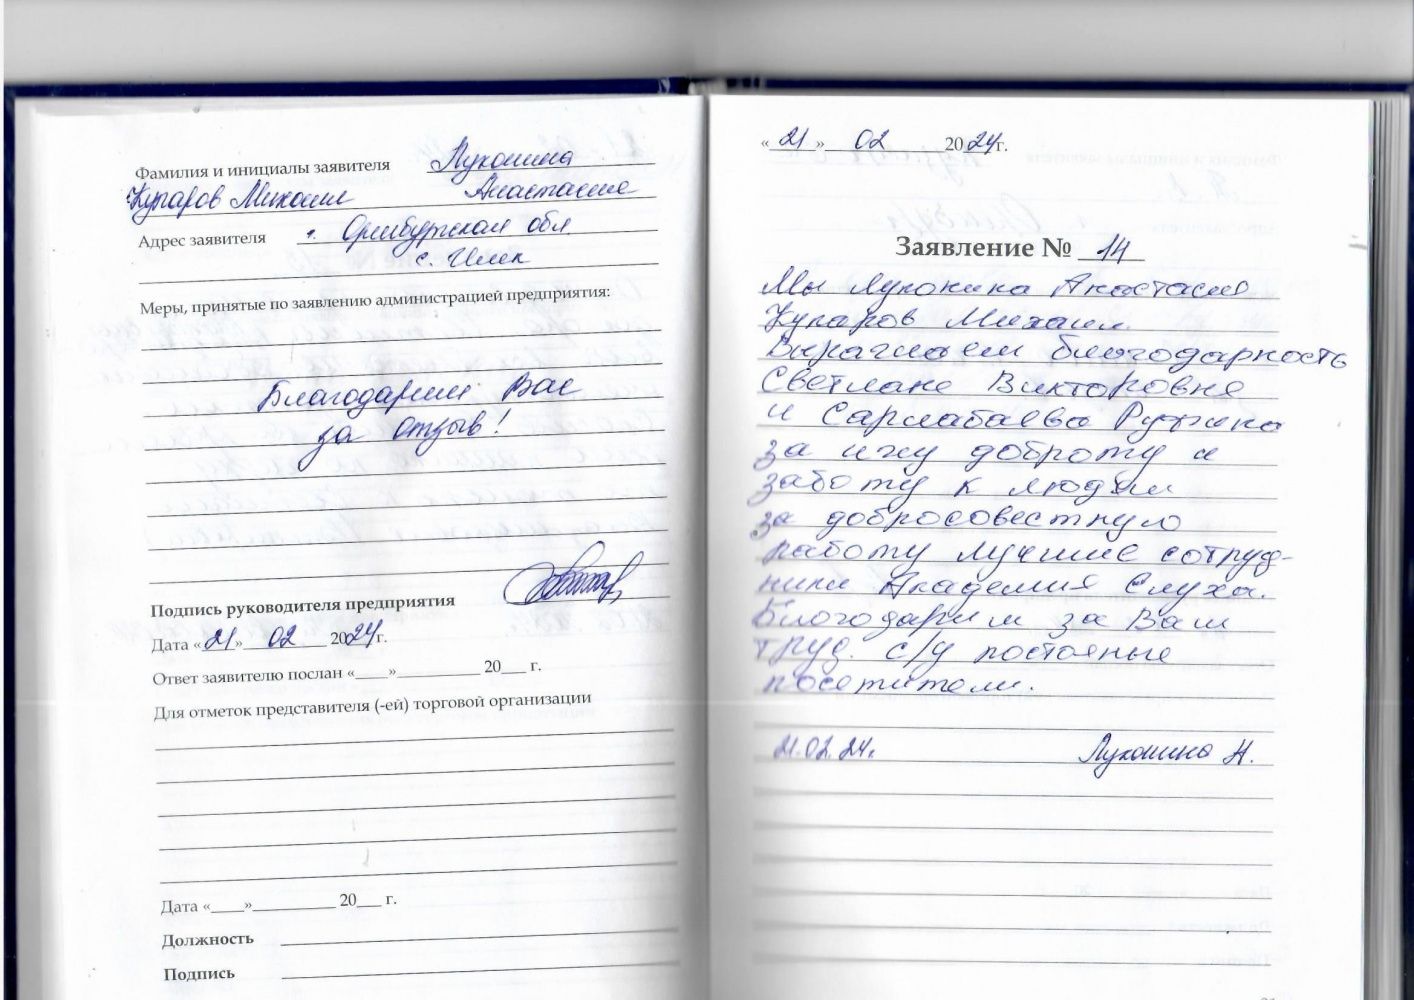 Фамилия и инициалы заявителя Луконина
Кукаров Михаил Анастасие
Адрес заявителя г. Оренбургская обл
с. Илек
Меры, принятые по заявлению администрацией предприятия:
Благодарим Вас
за отзыв!
Подпись руководителя предприятия
Дата «21» 02 2024г.
Ответ заявителю послан «___»__________ 20___ г.
Для отметок представителя (-ей) торговой организации
Дата «____»__________ 20___ г.
Должность
Подпись
«21» 02 2024г.
Заявление № 14
Мы Луконина Анастасие
Кукаров Михаил
Выражаем благодарность
Светлане Викторовне
и Сарлабаева Руфина
за ихну доброту и
заботу к людям
за добросовестную
работу лучшие сотруд-
ники Академия Слуха.
Благодарим за Ваш
труд. с/у постояные
посетители.
21.02.24г. Луконина А.